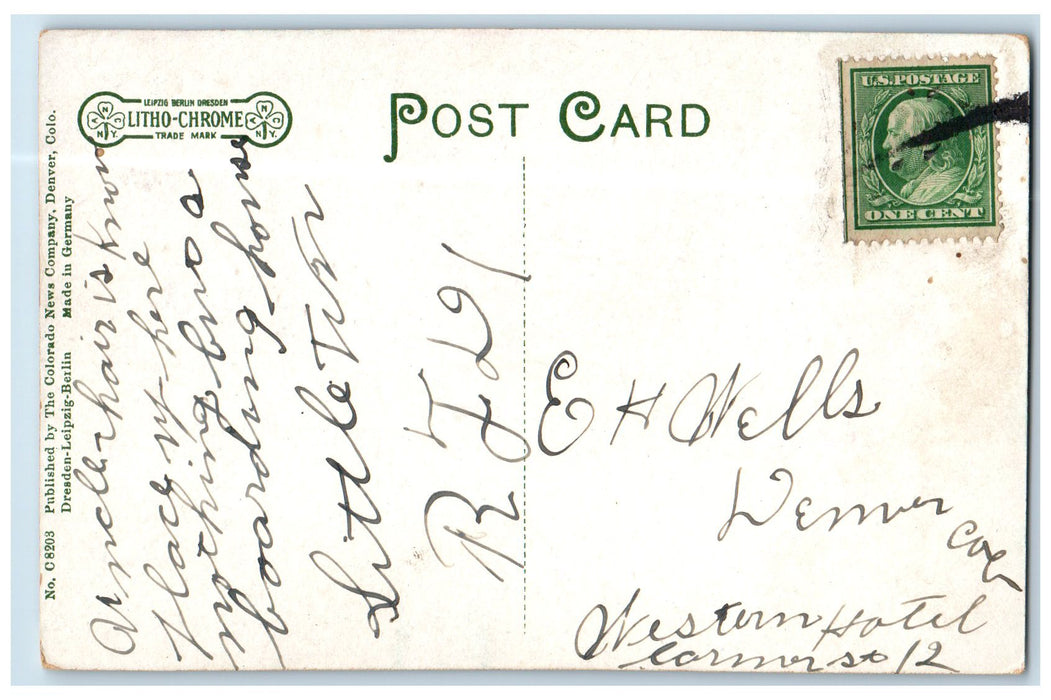 LEIPZIG BERLIN DRESDEN
LITHO-CHROME
TRADE MARK
N.Y.
N.Y.
POST CARD
U.S. POSTAGE
ONE CENT
No. C8203 Published by The Colorado News Company, Denver, Colo.
Dresden-Leipzig-Berlin Made in Germany
chair is
Place here
nothing but a
boarding house
Little Ton
R F D 1
E H Wells
Denver
Col
Western Hotel
Larmer st 12